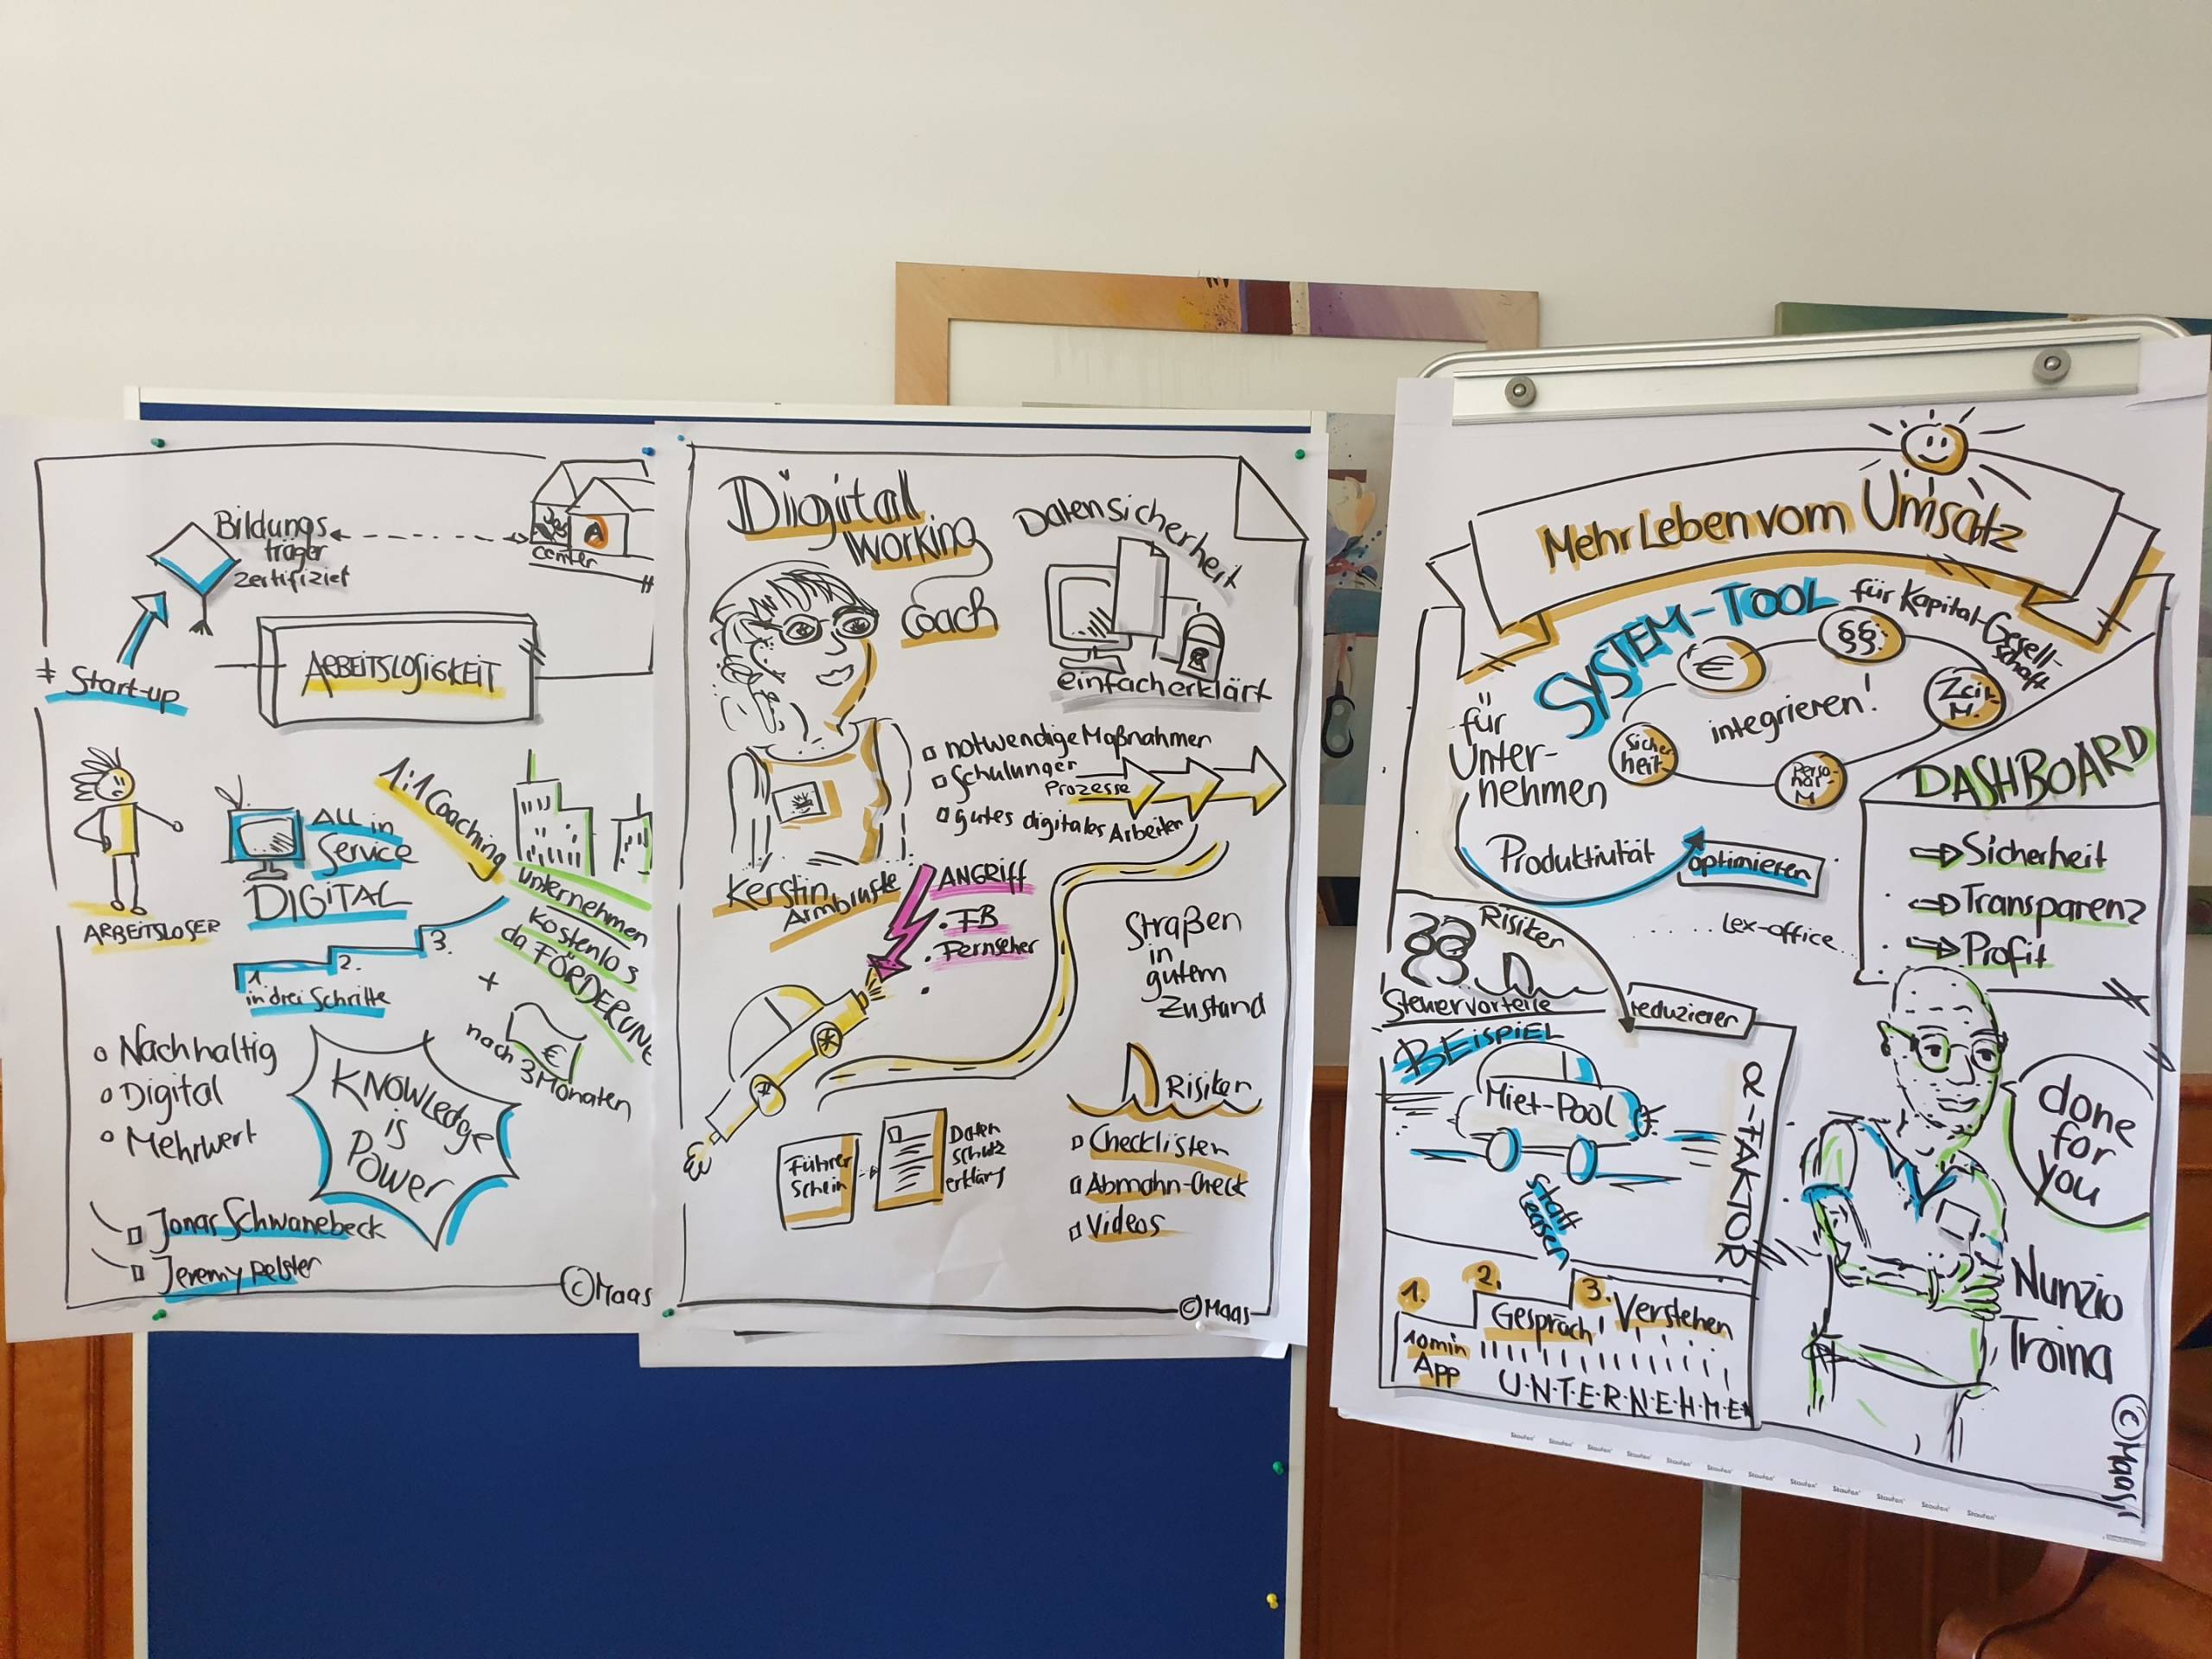 Bildungs
träger
zertifiziert
center
A
# Start-up
ARBEITSLOSIGKEIT
ARBEITSLOSER
ALL in
Service
DIGITAL
1:1 Coaching
unternehmen
kostenlos
da FÖRDERUNG
1.
2.
3.
in drei Schritte
+
€
nach 3 Monaten
o Nachhaltig
o Digital
o Mehrwert
KNOWLedge
is
Power
Jonas Schwanebeck
Jeremy
© Maas
Digital
Working
Coach
Datensicherheit
einfach erklärt
notwendige Maßnahmen
Schulungen
Prozesse
gutes digitales Arbeiten
Kerstin
Armbruste
ANGRIFF
• FB
• Fernseher
Straßen
in
gutem
Zustand
Führer
Schein
Daten
schutz
erklärg
Risiken
Checklisten
Abmahn-Check
Videos
© Maas
Mehr Leben vom Umsatz
SYSTEM-TOOL
für Kapital-Gesell-
schaft
€
§§
Zeit
M.
Perso-
nal-
M
Sicher
heit
integrieren!
für
Unter-
nehmen
Produktivität
optimieren
DASHBOARD
Sicherheit
Transparenz
Profit
Lex-office
Risiken
Steuervorteile
reduzieren
BEISPIEL
Miet-Pool
Staff
Leasen
α-FAKTOR
done
for
you
1.
2.
3.
10min
App
Gespräch!
Verstehen
U·N·T·E·R·N·E·H·M·E·N
Nunzio
Traina
© Maas
Staufen Staufen Staufen Staufen Staufen Staufen Staufen Staufen Staufen Staufen Staufen Staufen